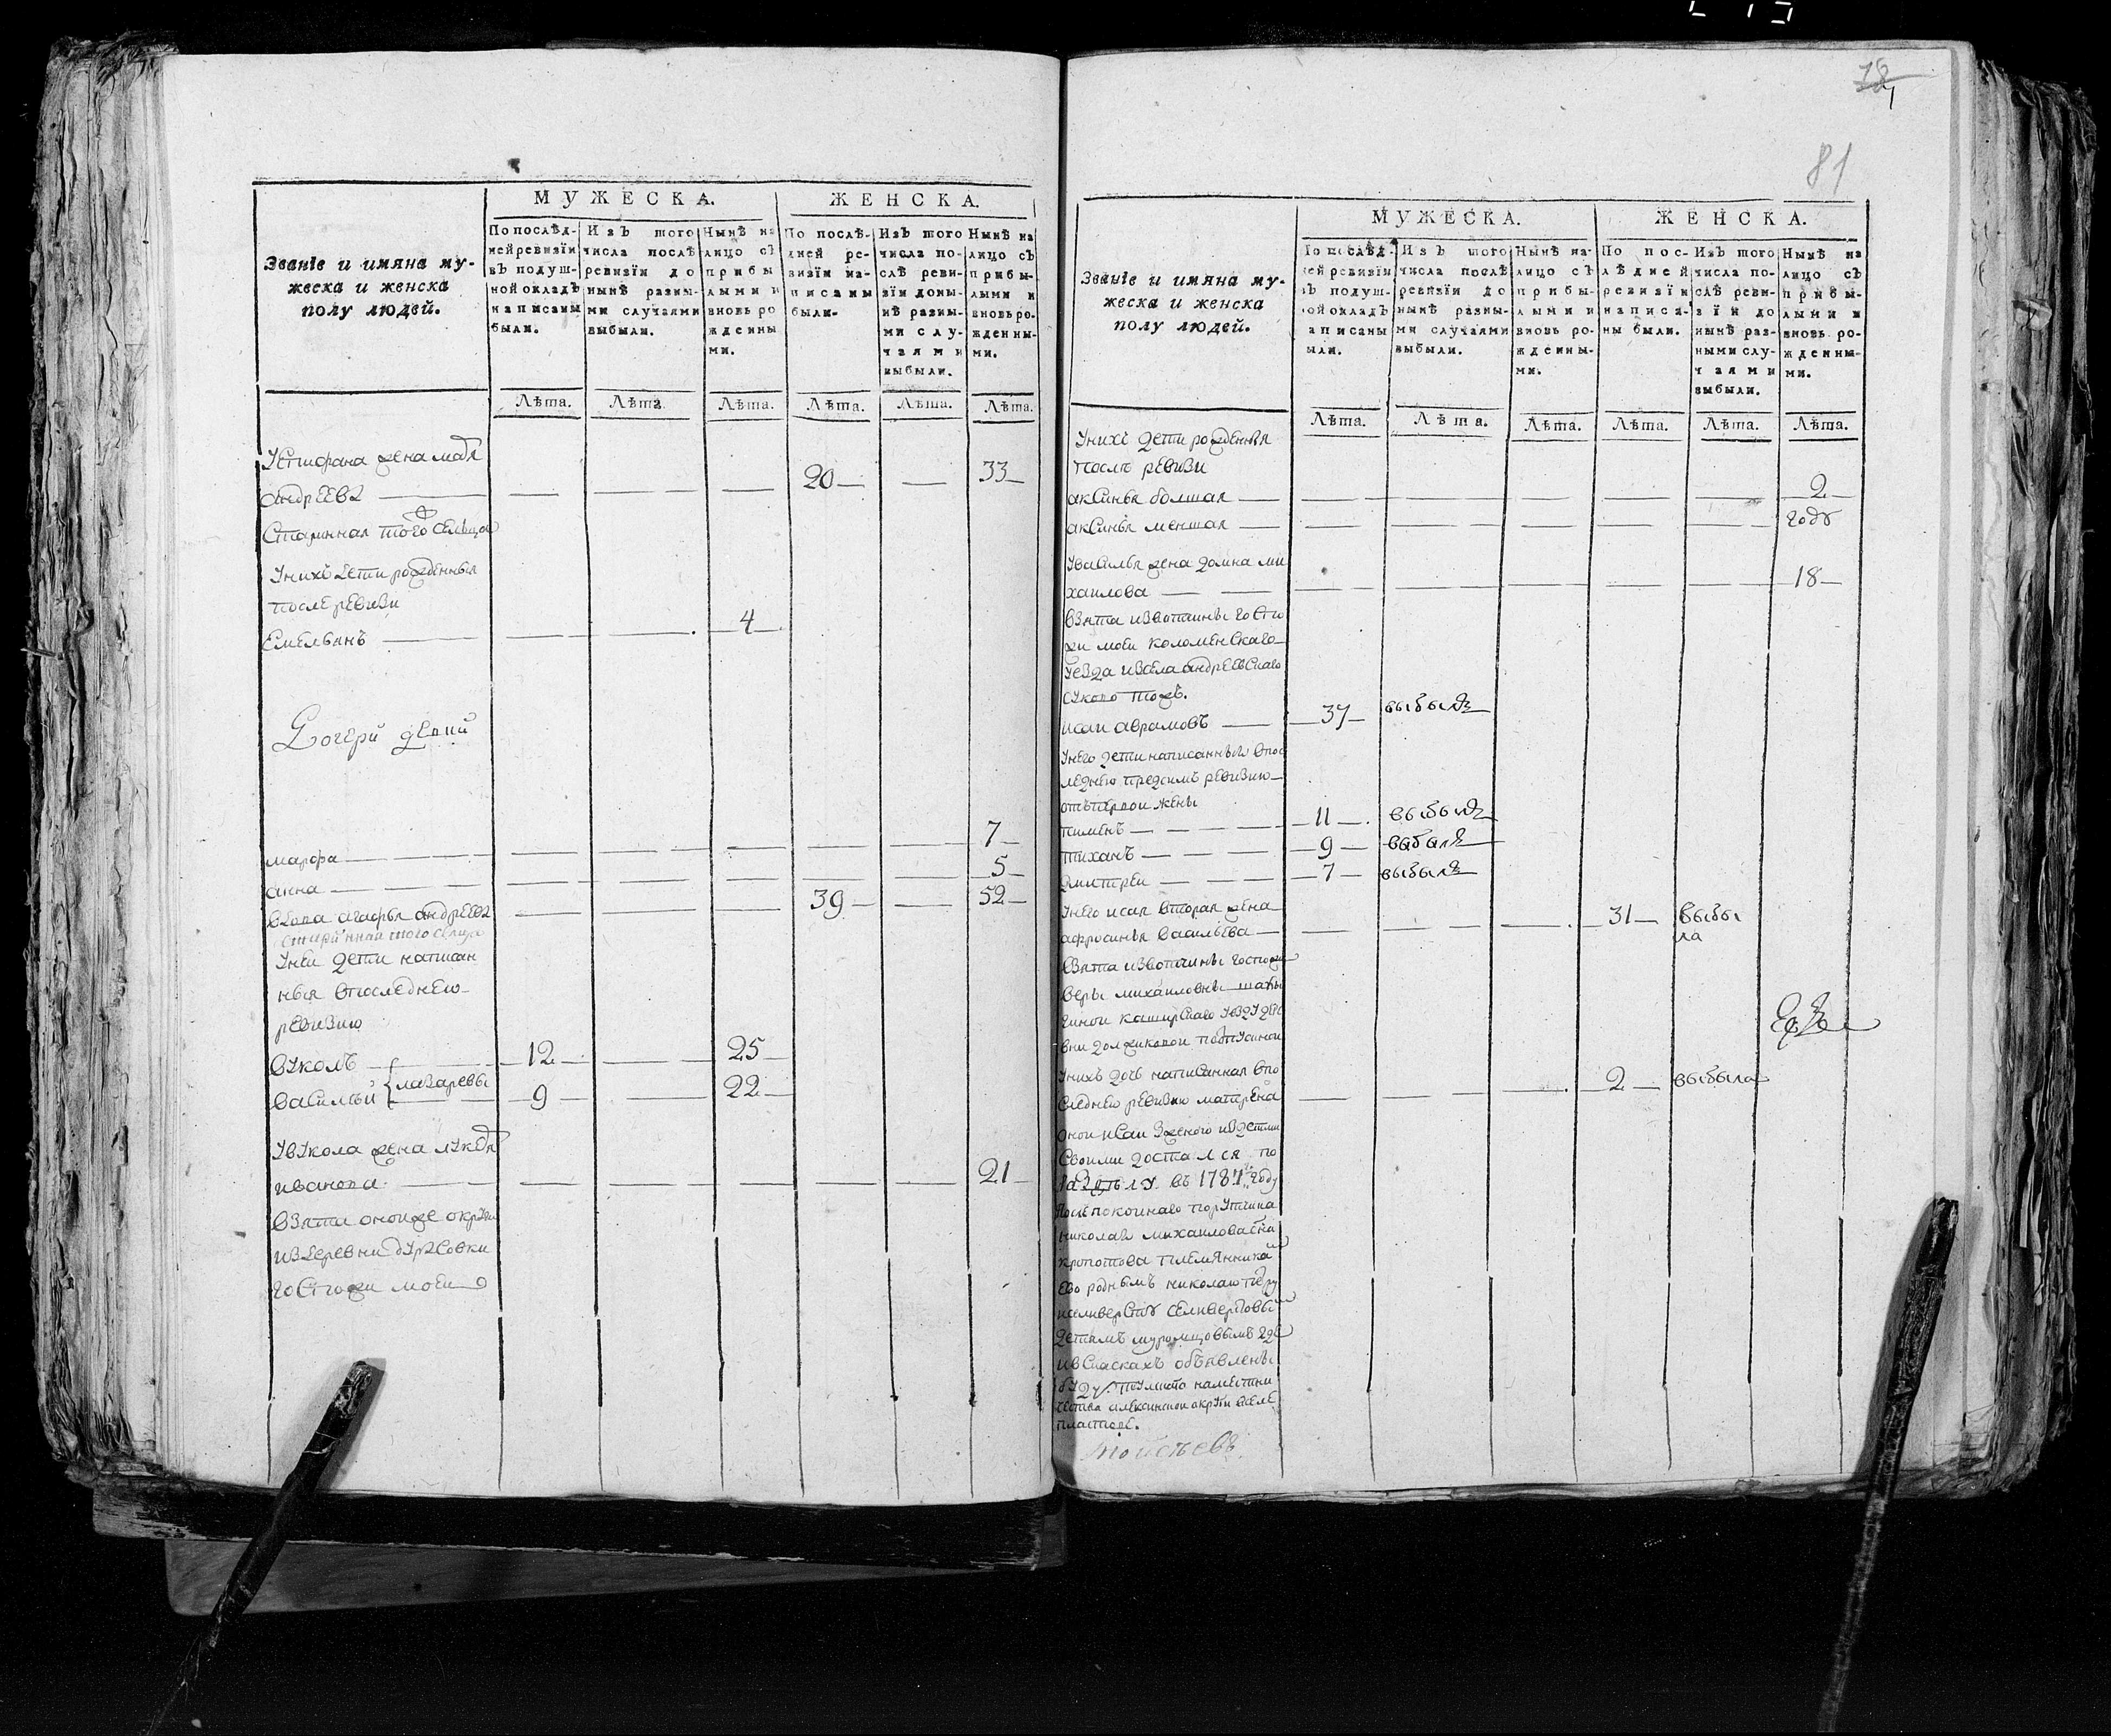 81
МУЖЕСКА.
ЖЕНСКА.
Званіе и имяна му-
жеска и женска
полу людей.
По послѣд-
ней ревизіи
въ подуш-
ной окладъ
написаны
были.
Изъ того
числа послѣ
ревизіи до
нынѣ разны-
ми случаями
выбыли.
Нынѣ на
лицо съ
прибы
лыми и
вновь ро
жденны
ми.
По послѣ-
дней ре-
визіи на-
писаны
были.
Изъ того
числа по-
слѣ реви-
зіи доны-
нѣ разны-
ми слу-
чаями
выбыли.
Нынѣ на
лицо съ
прибы-
лыми и
вновь ро-
жденны-
ми.
Лѣта. Лѣта Лѣта. Лѣта. Лѣта. Лѣта.
жена
андреева 20 33
Старинная того сельца
Униxъ дети рожденныя
после ревизи
Емельянъ 4
Дочери девки
марфа 7
анна 5
вдова агафья андреева 39 52
старинная того сельца
Уней дети написан
ныя впоследнею
ревизию
вуколъ 12 25
василий лазаревы 9 22
Увукола жена
иванова 21
взята оной же округи
из деревни
госпожи моей
МУЖЕСКА.
ЖЕНСКА.
Званіе и имяна му-
жеска и женска
полу людей.
По послѣд-
ней ревизіи
въ подуш-
ной окладъ
написаны
были.
Изъ того
числа послѣ
ревизіи до
нынѣ разны-
ми случаями
выбыли.
Нынѣ на-
лицо съ
прибы-
лыми и
вновь ро-
жденны-
ми.
По пос-
лѣдней
ревизіи
написа-
ны были.
Изъ того
числа по-
слѣ реви-
зіи до
нынѣ раз-
ными слу-
чаями
выбыли.
Нынѣ на
лицо съ
прибы-
лыми и
вновь ро-
жденны-
ми.
Лѣта. Лѣта. Лѣта. Лѣта. Лѣта. Лѣта.
Униxъ дети рожденныя
послѣ ревизи
аксинья болшая 2
аксинья меншая годъ
Увасилья жена домна ми
хаилова 18
взята извотчины госпо
жи моей коломенскаго
уезда изсела андреевскаго
тожъ.
исаи аврамовъ 37 выбылъ
Унего дети написанныя впос
леднею предсимъ ревизию
отъ первой жены
пименъ 11 выбылъ
тиханъ 9 выбылъ
дмитреи 7 выбылъ
Унего исая вторая жена
афросинья васильева 31 выбы
ла
взята извотчины госпожи
веры михаиловны
каширскаго уезду дере
вни
Униxъ дочь написанная впо
следнею ревизию матрена 2 выбыла
оной исаи зженою издетми
своими достался по
разделу въ 1787 году
после покойнаго порутчика
николая михаилова сна
кропотова племянникамъ
ево роднымъ николаю петру
иселиверсту селиверстовымъ
детямъ муромцовымъ где
ивсказкахъ объявлены
будутъ тулского намесни
чества алексинской округи вселе